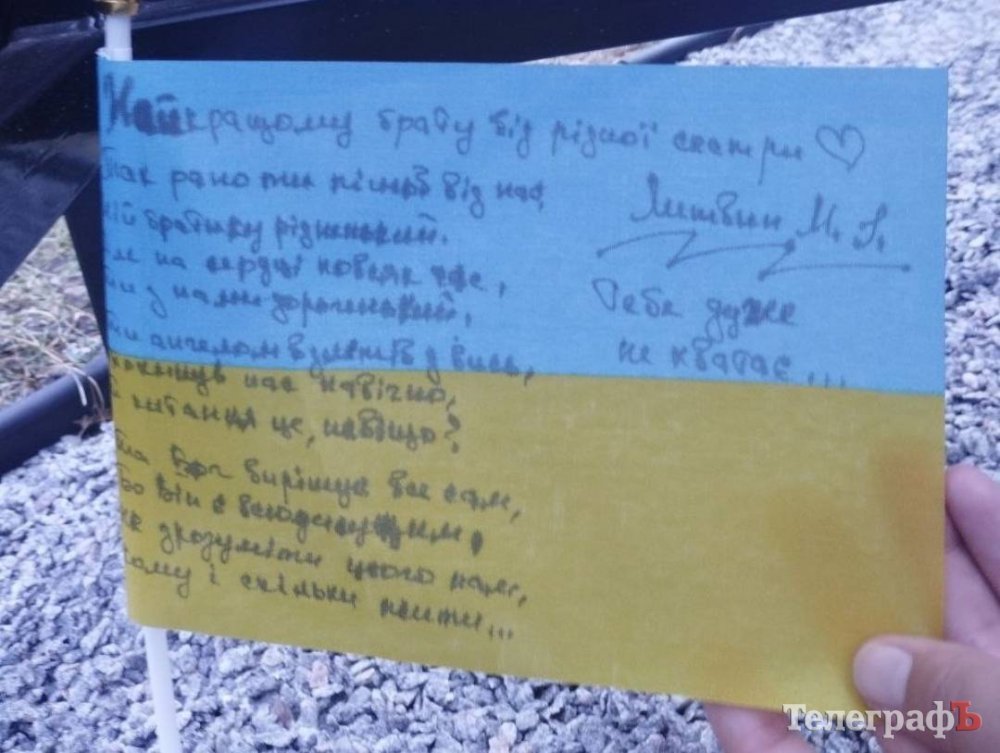 Найкращому брату від рідної сестри ♡
Так рано ти пішов від нас,
мій братику рідненький.
на серці повсяк час,
ти з нами дорогенький,
Ти ангелом взлетів у вись,
покинув нас навічно,
питання це, навіщо?
Та Бог вирішує все сам,
Бо він є всюдисущим,
не зрозуміти цього нам,
кому і скільки жити...
Литвин М. І.
Тебе дуже
не хватає...
ТелеграфЪ